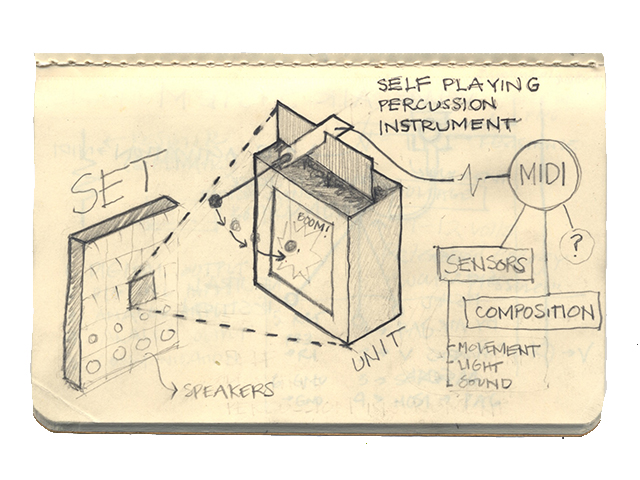 SELF PLAYING
PERCUSSION
INSTRUMENT
SET
BOOM!
MIDI
?
SENSORS
COMPOSITION
UNIT
- MOVEMENT
- LIGHT
- SOUND
SPEAKERS